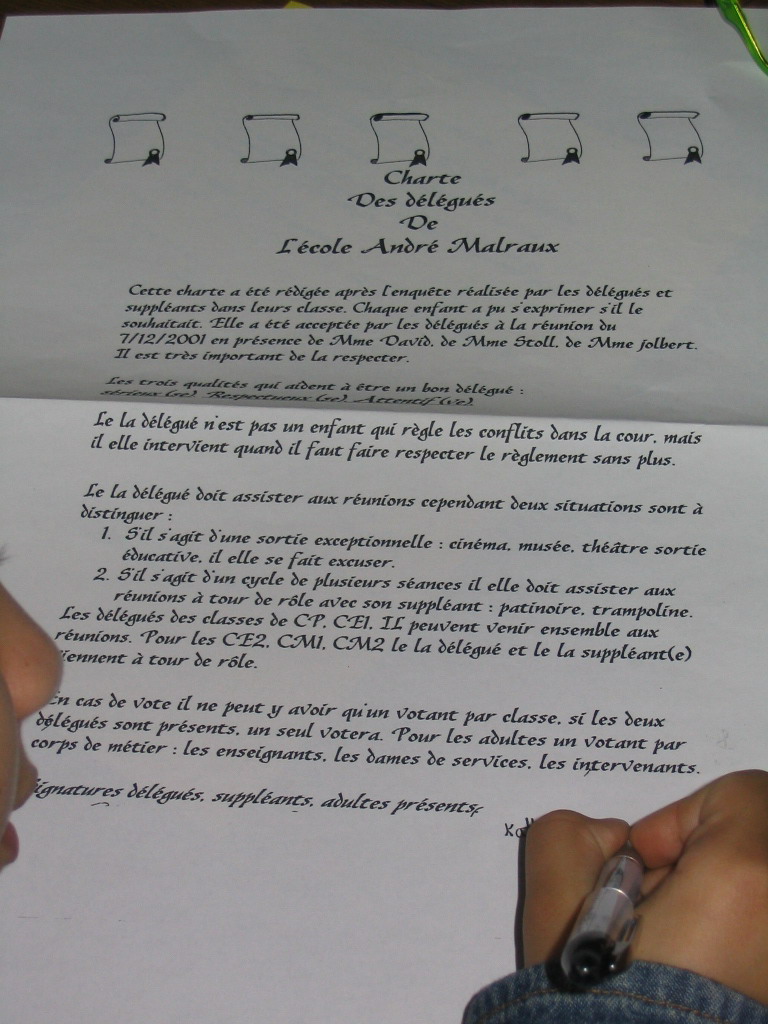 Charte
Des délégués
De
L'école André Malraux
Cette charte a été rédigée après l'enquête réalisée par les délégués et
suppléants dans leurs classe. Chaque enfant a pu s'exprimer s'il le
souhaitait. Elle a été acceptée par les délégués à la réunion du
7/12/2001 en présence de Mme David, de Mme Stoll, de Mme jolbert.
Il est très important de la respecter.
Les trois qualités qui aident à être un bon délégué :
sérieux (se) Respectueux (se) Attentif (ve)
Le la délégué n'est pas un enfant qui règle les conflits dans la cour, mais
il elle intervient quand il faut faire respecter le règlement sans plus.
Le la délégué doit assister aux réunions cependant deux situations sont à
distinguer :
1. S'il s'agit d'une sortie exceptionnelle : cinéma, musée, théâtre sortie
éducative, il elle se fait excuser.
2. S'il s'agit d'un cycle de plusieurs séances il elle doit assister aux
réunions à tour de rôle avec son suppléant : patinoire, trampoline.
Les délégués des classes de CP, CE1, IL peuvent venir ensemble aux
réunions. Pour les CE2, CM1, CM2 le la délégué et le la suppléant(e)
iennent à tour de rôle.
En cas de vote il ne peut y avoir qu'un votant par classe, si les deux
délégués sont présents, un seul votera. Pour les adultes un votant par
corps de métier : les enseignants, les dames de services, les intervenants.
ignatures délégués, suppléants, adultes présents,